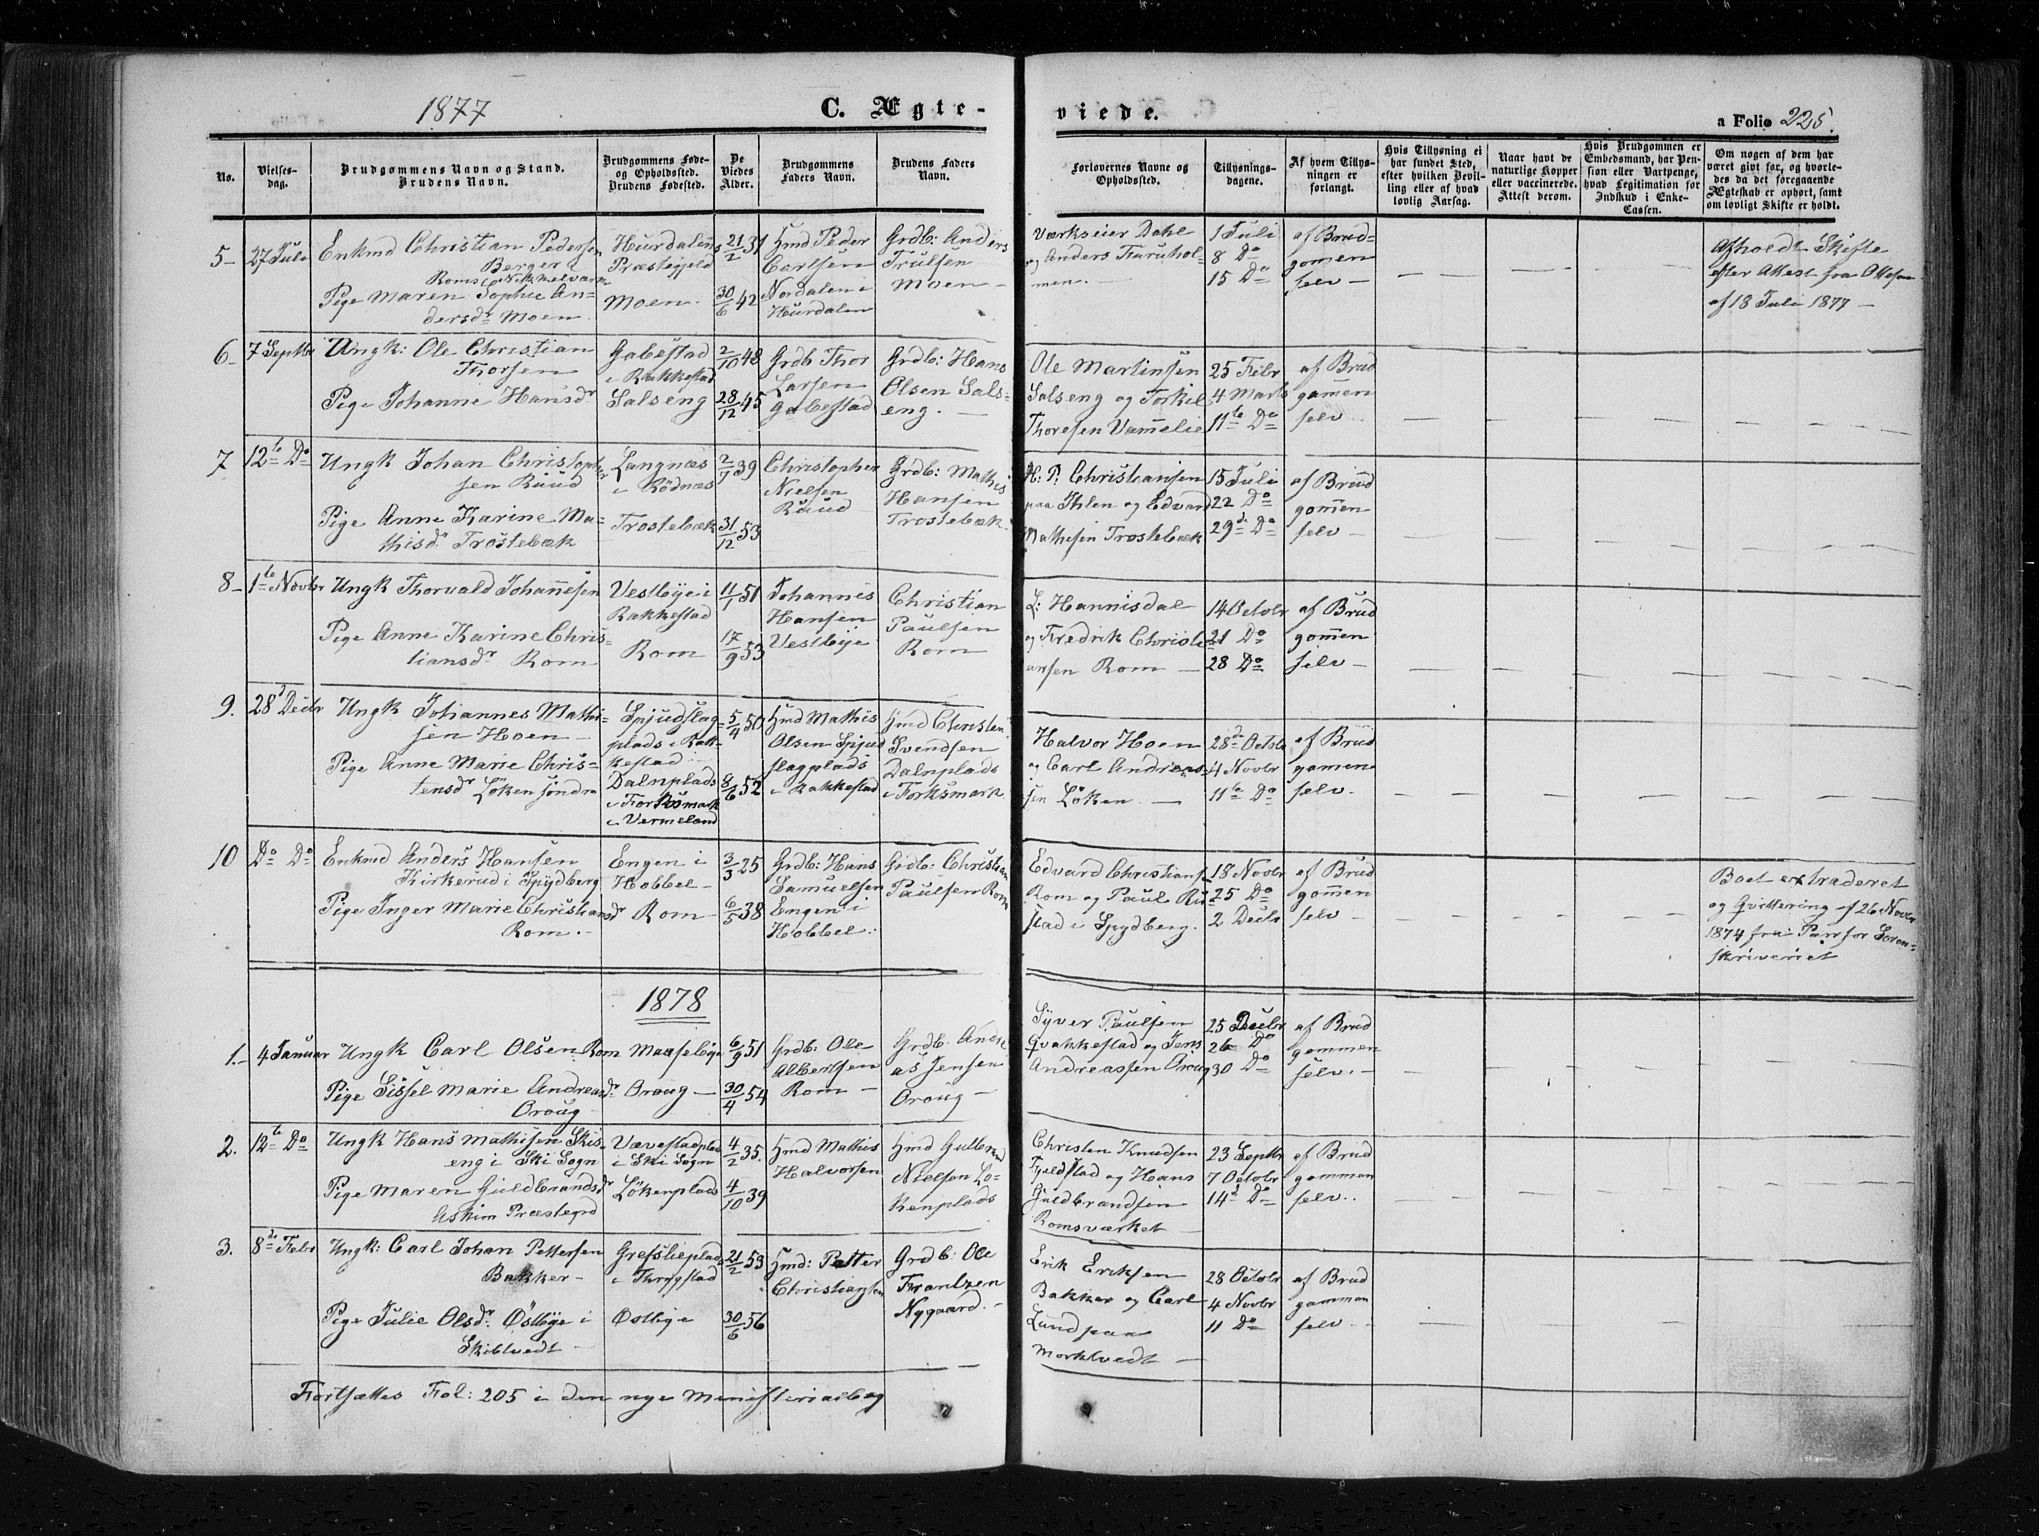 1877
C. Ægte-
viede.
a Folio 225.
No.
Vielses-
dag.
Brudgommens Navn og Stand.
Brudens Navn.
Brudgommens Føde-
og Opholdssted.
Brudens Fødested.
De
Viedes
Alder.
Brudgommens
Faders Navn.
Brudens Faders
Navn.
Forlovernes Navne og
Opholdssted.
Tillysnings-
dagene.
Af hvem Tillys-
ningen er
forlangt.
Hvis Tillysning ei
har fundet Sted,
efter hvilken Bevil-
ling eller af hvad
lovlig Aarsag.
Naar havt de
naturlige Kopper
eller vaccinerede.
Attest derom.
Hvis Brudgommen er
Embedsmand, har Pen-
sion eller Vartpenge,
hvad Legitimation for
Indskud i Enke-
Cassen.
Om nogen af dem har
været gift før, og hvorle-
des da det foregaaende
Ægteskab er ophørt, samt
om lovligt Skifte er holdt.
5- 27 Juli
Enkmd Christian Pedersen
Berger
Roms Nikkelværk
Pige Maren Sophie An-
dersdr Moen.
Hurdalens
Præstegjeld
Moen.
21/2 31
30/6 42
Hmd Peder
Carlsen
Nordalen i
Hurdalen
Grdb: Anders
Trulsen
Moen -
Værkseier Dahl
og Anders Furuhol-
men. -
1 Juli
8 Do
15 Do
af Brud-
gomen
selv -
Afholdt Skifte
efter Attest fra
af 18 Juli 1877 -
6- 7 Septbr
Ungk: Ole Christian
Thorsen
Pige Johanne Hansdr
Gabestad
i Rakkestad
Salseng
2/10 48
28/12 45
Grdb Thor
Larsen
Gabestad
Grdb: Hans
Olsen Sals-
eng. -
Ole Martinsen
Salseng og Torkil
Thoresen Vammelie
25 Febr
4 Marts
11te Do
af Brud
gomen
selv..
7 12te Do
Ungk Johan Christoph-
sen Ruud
Pige Anne Karine Ma-
thisdr Trostebæk
Langnæs
i Rödnæs
Trostebæk
2/7 39
31/12 53
Christopher
Nielsen
Ruud
Grdb: Mathis
Hansen
Trostebæk.
H: P. Christiansen
paa Ihlen og Edvard
Mathisen Trostebæk
15 Juli
22 Do
29de Do
af Brud
gomen
selv -
8- 1te Novbr
Ungk Thorvald Johannesen
Pige Anne Karine Chris-
tiansdr Rom
Vestbye i
Rakkestad
Rom
11/1 51
17/9 53
Johannes
Hansen
Vestbye
Christian
Paulsen
Rom
L: Hannisdal
og Fredrik Christi-
ansen Rom -
14 Octobr
21 Do
28 Do
af Brud
gomen
selv -
9. 28d Decbr
Ungk Johannes Mathi-
sen Hoen -
Pige Anne Marie Chris-
tensdr Löken söndre
Spjudslag-
plads i Rak-
kestad
Dalnplads
i Forksmark
i Vermeland
5/4 50
8/6 52
Hmd Mathis
Olsen Spjud
slagplads
i Rakkestad
Hmd Christen
Svendsen
Dalnplads
i Forksmark
Halvor Hoen
og Carl Andreas-
sen Löken. -
28de Octobr
4 Novbr
11te Do
af Brud
gomen
selv.
10 Do Do
Enkmd Anders Hansen
Kirkerud i Spydberg
Pige Inger Marie Christiansdr
Rom. -
Engen i
Hobbel -
Rom -
3/3 25
6/5 38
Grdb: Hans
Samuelsen
Engen i
Hobbel.
Grdb: Christian
Paulsen Rom
Edvard Christians
Rom og Paul Ru-
stad i Spydberg.
18 Novbr
25 Do
2 Decbr
af Brud
gomen
selv -
Boet extraderet
og Qvittering af 26 Novbr
1874 fra Soren-
skriveriet
1878
1.- 4 Januar
Ungk Carl Olsen Rom
Pige Sissel Marie Andreasdr
Oroug -
Maaseby
Oroug -
6/9 51
30/4 54
Grdb: Ole
Albertsen
Rom -
Grdb. Andre
as Jensen
Oroug -
Syver Paulsen
Qvakkestad og Jens
Andreassen Oroug
25 Decbr
26 Do
30 Do
af Brud
gommen
selv. -
2. 12te Do
Ungk Hans Mathisen Skis-
eng i Ski Sogn
Pige Maren Guldbrandsdr
Askim Præstegd
Vævestadplads
i Ski Sogn
Lökenplads
4/2 35.
4/10 39
Hmd Mathis
Halvorsen
Hmd Gulbrand
Nielsen Lö-
kenplads
Christen Knudsen
Fjeldstad og Hans
Guldbrandsen
Romsværket -
23 Septbr
7 Octobr
14d Do
af Brud
gommen
selv..
3. 8de Febr
Ungk: Carl Johan Pettersen
Bakker -
Pige Julie Olsdr. Östbye i
Skibtvedt -
Grefslieplads
i Thrygstad
Östbye
21/2 53
30/6 56
Hmd: Petter
Christiansen
Grdb: Ole
Frantzen
Nygaard. -
Erik Eriksen
Bakker og Carl
Lund paa
Morktvedt -
28 Octobr
4 Novbr
11 Do
af Brud
gommen
selv -
Fortsættes Fol: 205 i den nye Ministerialbog